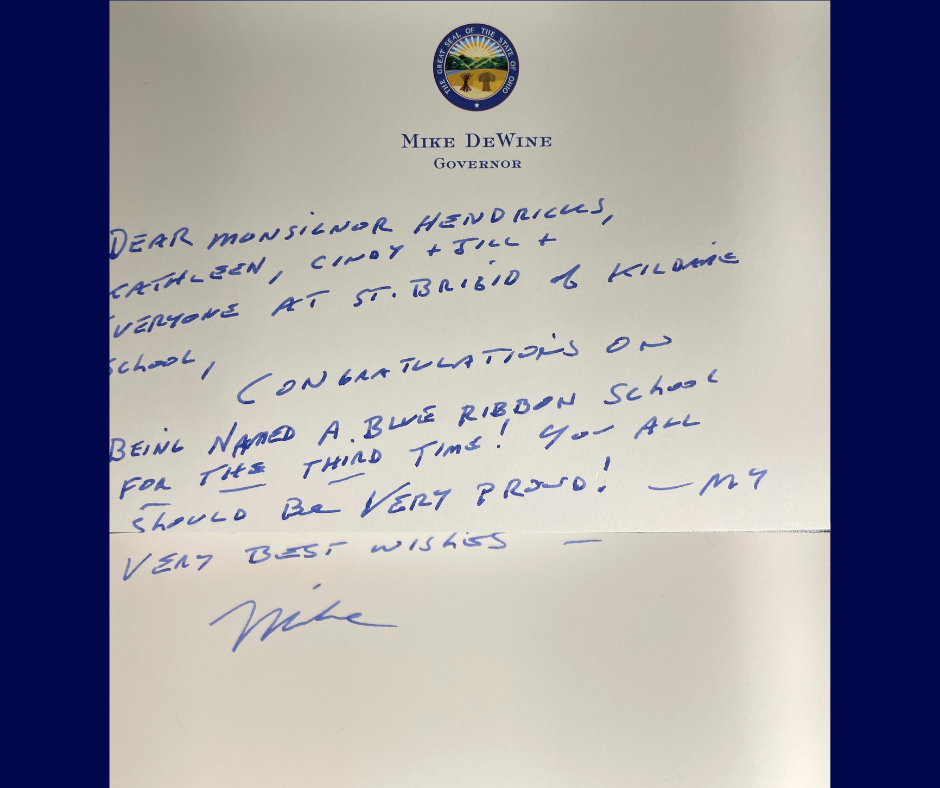 THE GREAT SEAL OF THE STATE OF OHIO
MIKE DEWINE
GOVERNOR
DEAR MONSIGNOR HENDRICKS,
KATHLEEN, CINDY + JILL +
EVERYONE AT ST. BRIGID of KILDARE
SCHOOL,
CONGRATULATIONS ON
BEING NAMED A BLUE RIBBON SCHOOL
FOR THE THIRD TIME! YOU ALL
SHOULD Be VERY PROUD! — MY
VERY BEST WISHES —
Mike